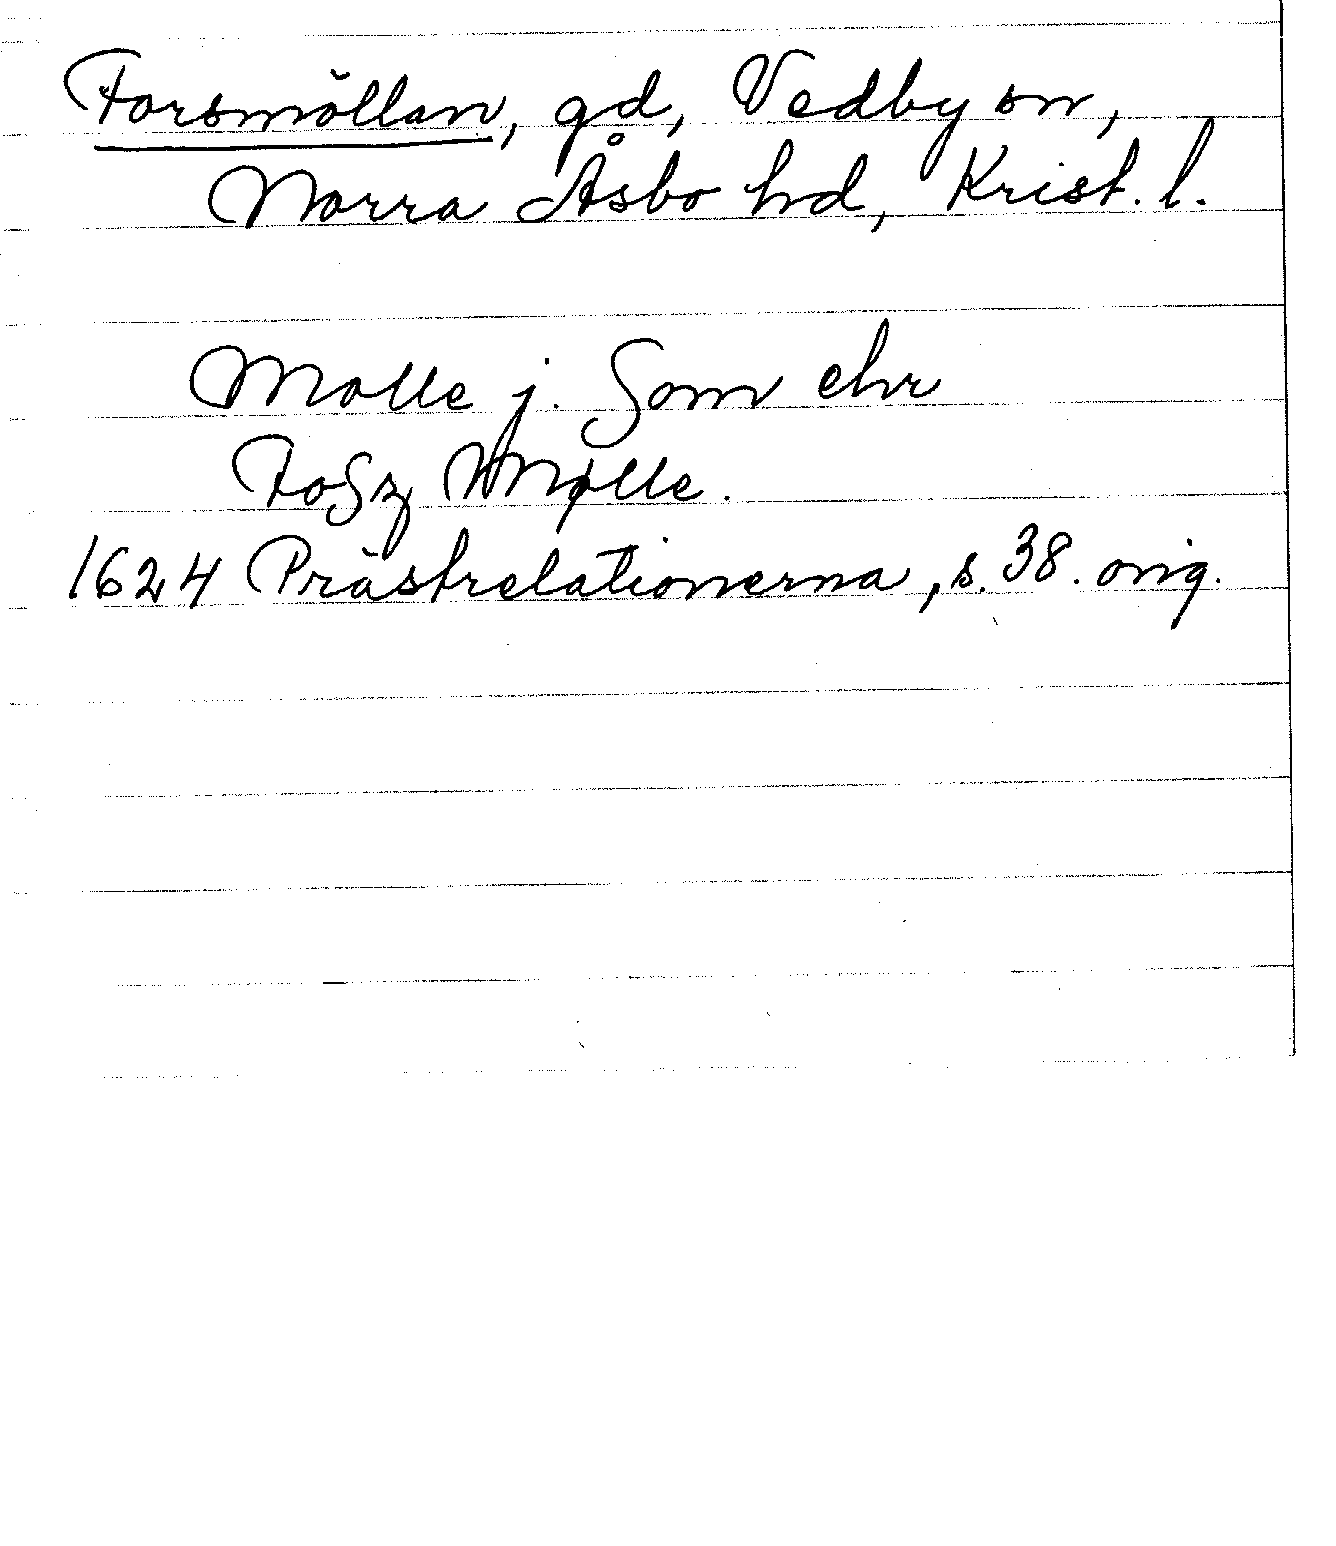 Forsmöllan, gd, Vedby sn,
Norra Åsbo hd, Krist. l.
Molle j. Som ehr
Fosz Mølle.
1624 Prästrelationerna, s. 38. orig.